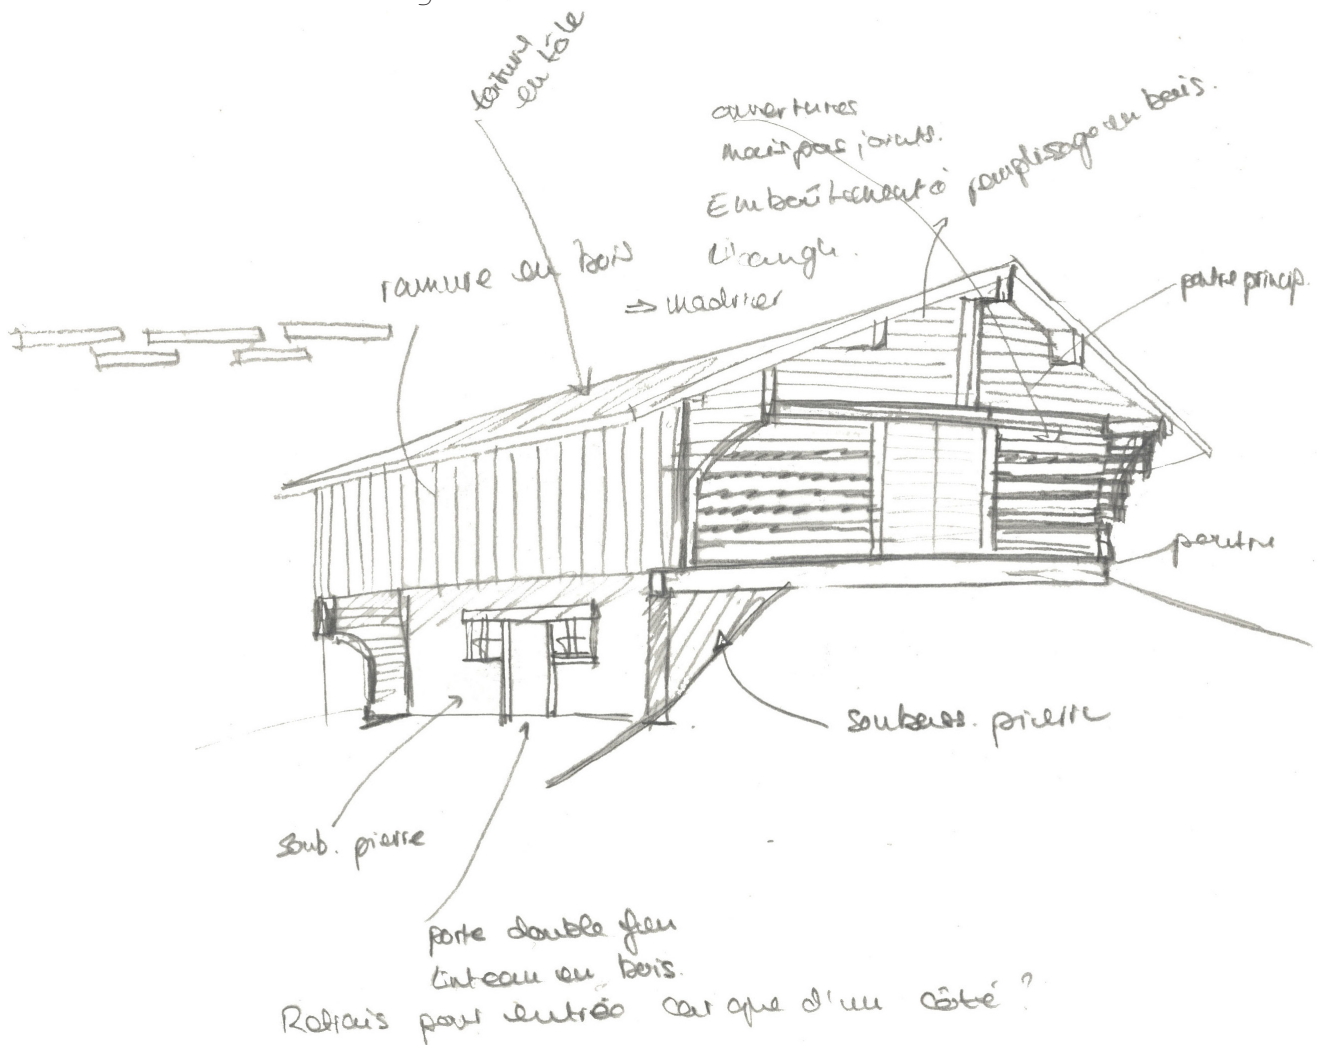 toiture
en tôle
ouvertures
mais pas joints.
Emboîtement à
l'angle.
remplissage en bois.
ramure en bois
⇒ madrier
poutre princip.
poutre
soubass. pierre
soub. pierre
porte double
linteau en bois.
pour entrée car que d'un côté ?